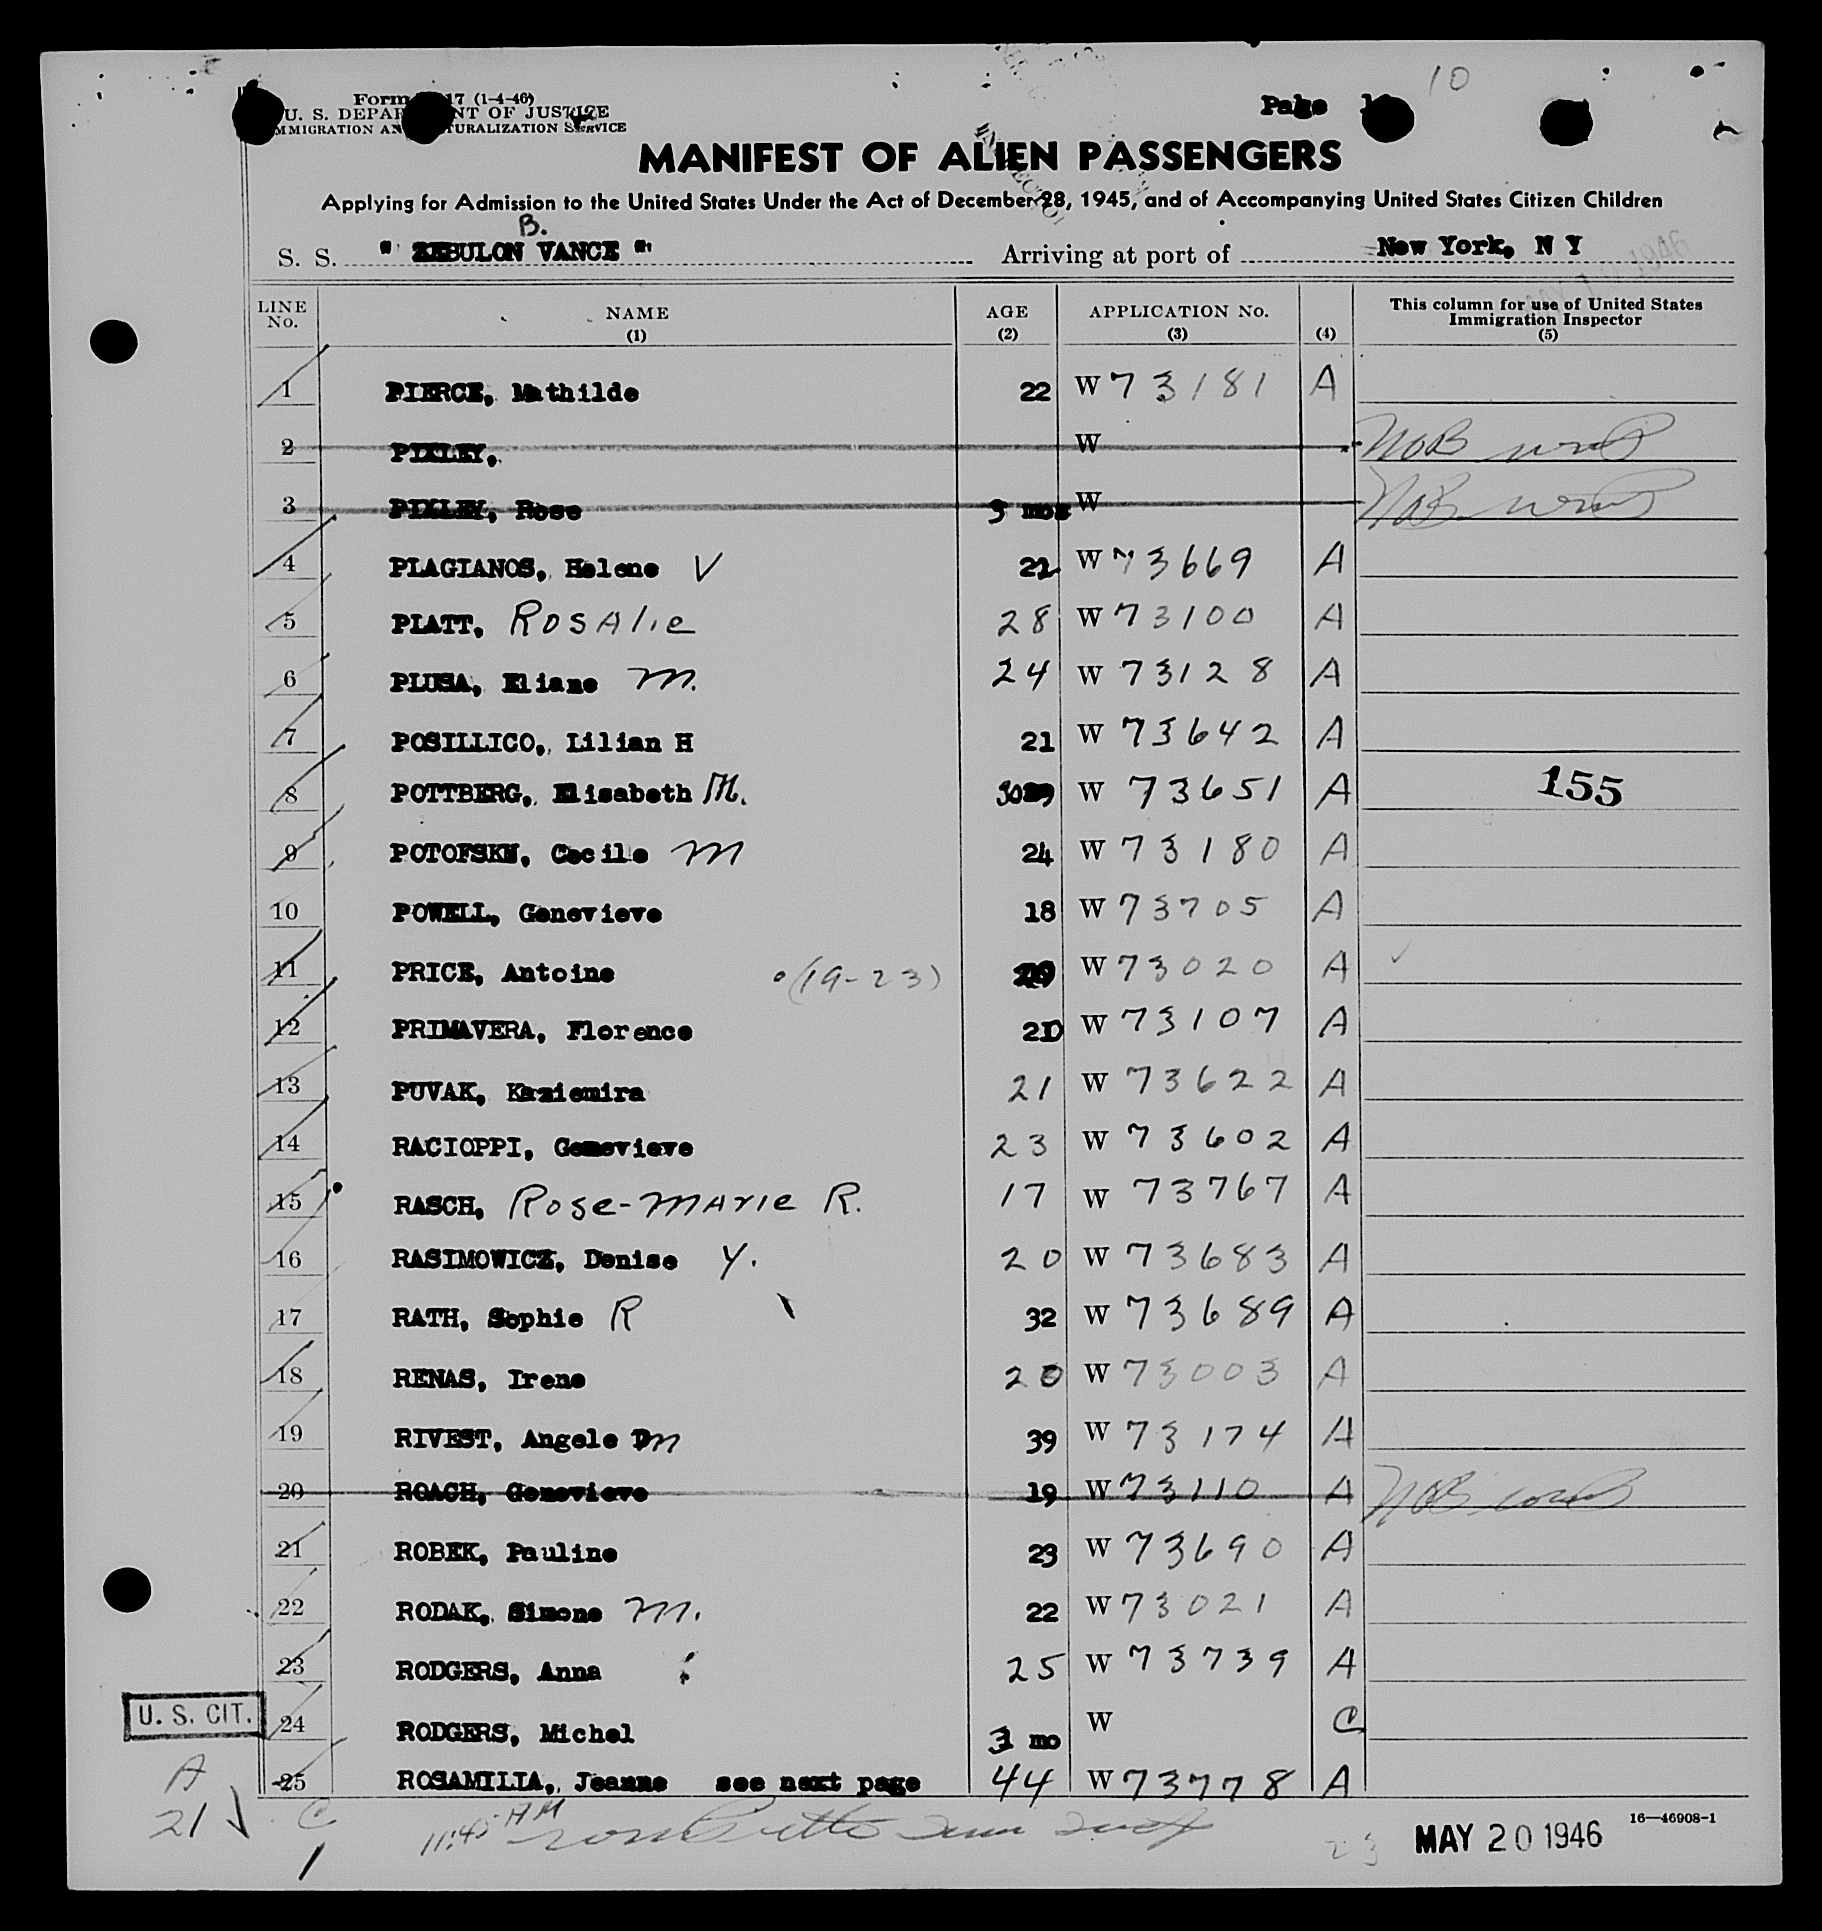 10
Form 17 (1-4-46)
U. S. DEPARTMENT OF JUSTICE
IMMIGRATION AND NATURALIZATION SERVICE
Page
MANIFEST OF ALIEN PASSENGERS
Applying for Admission to the United States Under the Act of December 28, 1945, and of Accompanying United States Citizen Children
B.
S. S. " ZEBULON VANCE " Arriving at port of New York, N Y
LINE No. NAME (1) AGE (2) APPLICATION No. (3) (4) This column for use of United States Immigration Inspector (5)
1 PIERCE, Mathilde 22 W 73181 A
2 PIXLEY, W NOB
3 PIXLEY, Rose mos W NOB
4 PLAGIANOS, Helene V 22 W 73669 A
5 PLATT, Rosalie 28 W 73100 A
6 PLUSA, Eliane M. 24 W 73128 A
7 POSILLICO, Lilian H 21 W 73642 A
8 POTTBERG, Elisabeth M. 30 W 73651 A 155
9 POTOFSKY, Cecile M 24 W 73180 A
10 POWELL, Genevieve 18 W 73705 A
11 PRICE, Antoine (19-23) W 73020 A ✓
12 PRIMAVERA, Florence W 73107 A
13 PUVAK, Kaziemira 21 W 73622 A
14 RACIOPPI, Genevieve 23 W 73602 A
15 RASCH, Rose-Marie R. 17 W 73767 A
16 RASIMOWICZ, Denise Y. 20 W 73683 A
17 RATH, Sophie R 32 W 73689 A
18 RENAS, Irene 20 W 73003 A
19 RIVEST, Angele M 39 W 73174 A
20 ROACH, Genevieve 19 W 73110 A NOB
21 ROBEK, Pauline 23 W 73690 A
22 RODAK, Simone M. 22 W 73021 A
23 RODGERS, Anna 25 W 73739 A
U. S. CIT. 24 RODGERS, Michel 3 mo W C
25 ROSAMILIA, Jeanne see next page 44 W 73778 A
A
21 C
1
11:45 AM
16—46908-1
23 MAY 20 1946